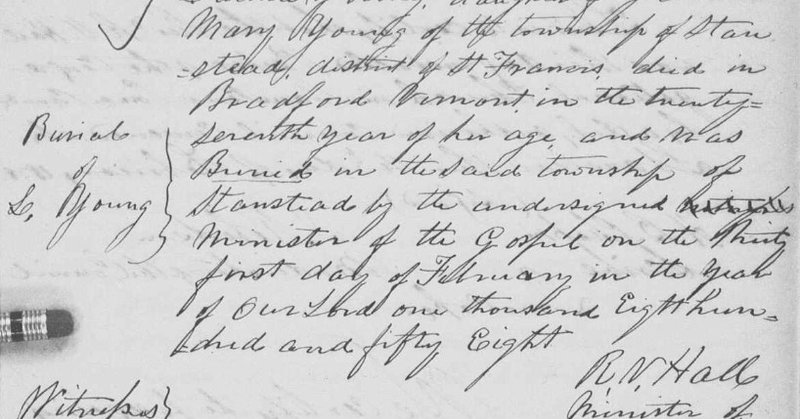 daughter of
Mary Young of the township of Stan
=stead, district of St Francis, died in
Bradford Vermont, in the twenty=
seventh year of her age, and was
Buried in the said township of
Stanstead by the undersigned
Minister of the Gospel on the Thirty
first day of February in the year
of Our Lord one thousand Eight hun-
-dred and fifty Eight
R. V. Hall
Minister of
Burial
of
L. Young
Witnesses